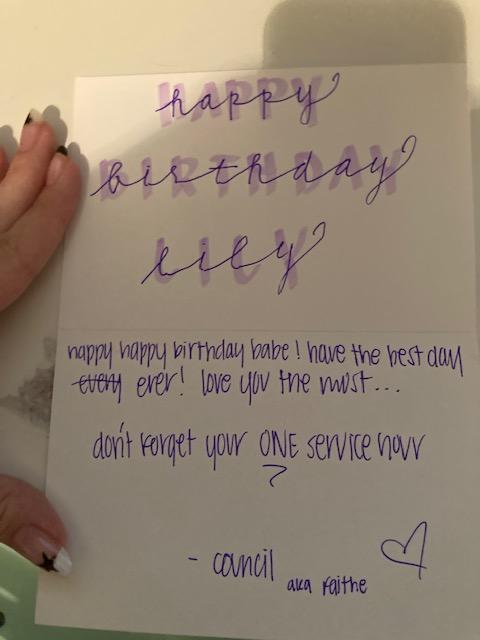 happy
birthday
lily
happy happy birthday babe! have the best day
every ever! love you the most...
don't forget your ONE service hour
?
- council
aka Faithe